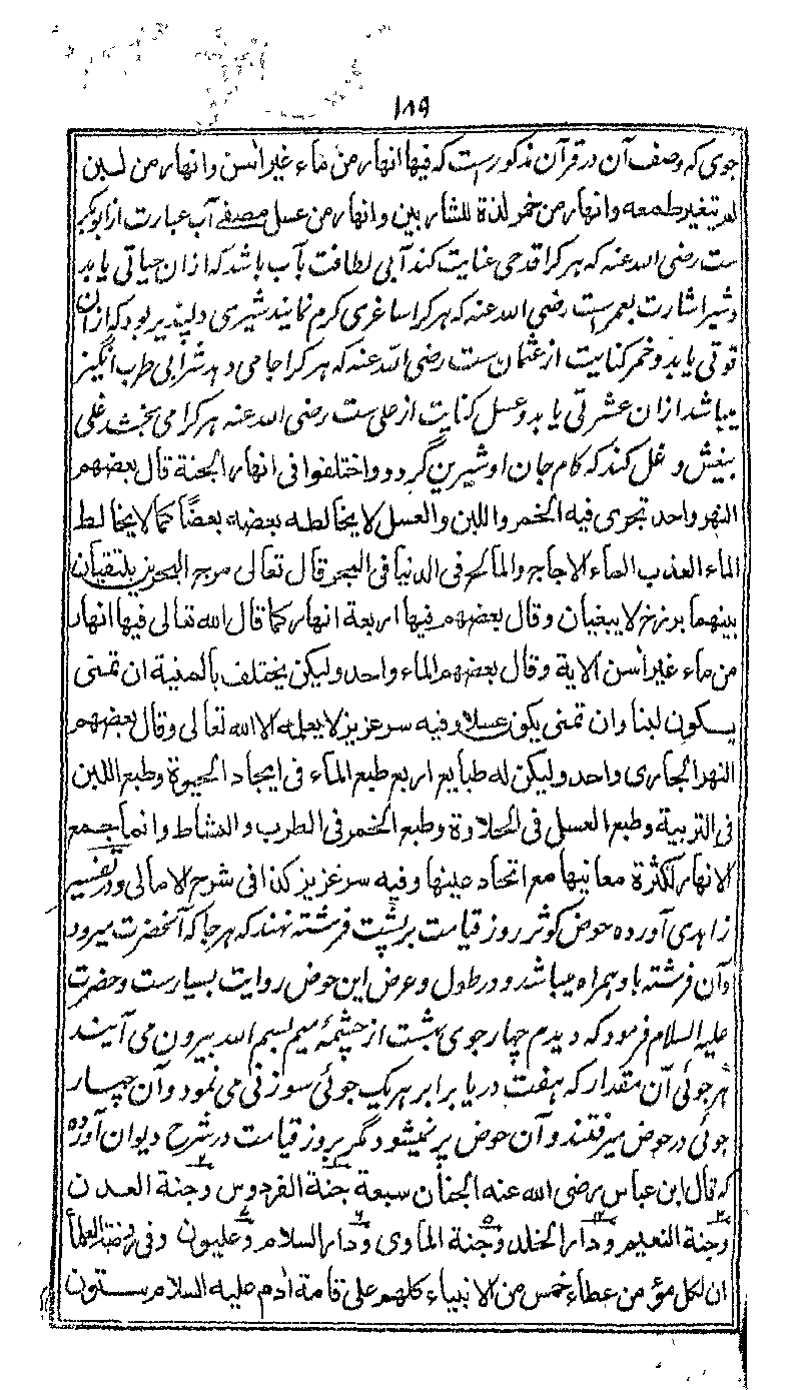 ۱۸۹
جوی که وصف آن در قرآن مذکورست که فیها انهار من ماء غیر اٰسن وانهار من لبن
لم یتغیر طعمه وانهار من خمر لذة للشاربین وانهار من عسل مصفے آب عبارت از ابوبکر
ست رضی الله عنه که هر کرا قدحی عنایت کند آبی لطافت بآب باشد که ازان حیاتی یابد
وشیر اشارت بعمرست رضی الله عنه که هر کرا ساغری کرم نمایند شیری دلپذیر بود که ازان
قوتی یابد وخمر کنایت از عثمان ست رضی الله عنه که هر کرا جامی دهد شرابی طرب انگیز
میباشد ازان عشرتی یابد وعسل کنایت از علی ست رضی الله عنه هر کرا می بخشد غلی
بیغش و غل کند که کام جان او شیرین گردد واختلفوا فی انهار الجنة قال بعضهم
النهر واحد تجری فیه الخمر واللبن والعسل لا یخالطه بعضه بعضًا کما لا یخالط
الماء العذب الماء الاجاج والمالح فی الدنیا فی البحر قال تعالی مرج البحرین یلتقیان
بینهما برزخ لا یبغیان وقال بعضهم فیها اربعة انهار کما قال الله تعالی فیها انهار
من ماء غیر اٰسن الایة وقال بعضهم الماء واحد ولیکن یختلف بالمنیة ان تمنی
یکون لبنا وان تمنی یکون عسلا وفیه سر عزیز لا یعلمه الا الله تعالی وقال بعضهم
النهر الجاری واحد ولیکن له طبایع اربع طبع الماء فی ایجاد الحیوة وطبع اللبن
فی التربیة وطبع العسل فی الحلاوة وطبع الخمر فی الطرب والنشاط وانما جمع
الانهار لکثرة معانیها مع اتحاد عینها وفیه سر عزیز کذا فی شرح الامالی ودر تفسیر
زاهدی آورده حوض کوثر روز قیامت بر پشت فرشته نهند که هر جا که آنحضرت میرود
وآن فرشته با و همراه میباشد ودر طول وعرض این حوض روایت بسیارست وحضرت
علیه السلام فرمود که دیدم چهار جوی بهشت از چشمهٔ میم بسم الله بیرون می آیند
هر جوئی آن مقدار که هفت دریا برابر هریک جوئی سوزنی می نمود وآن چهار
جوئی در حوض میرفتند وآن حوض پر نمیشود مگر بروز قیامت در شرح دیوان آورده
که قال ابن عباس رضی الله عنه الجنان سبعة جنة الفردوس وجنة العدن
وجنة النعیم ودار الخلد وجنة الماوی ودار السلام وعلیون وفی روضة العلماء
ان لکل مؤمن عطاء خمس من الانبیاء کلهم علی قامة اٰدم علیه السلام ستون